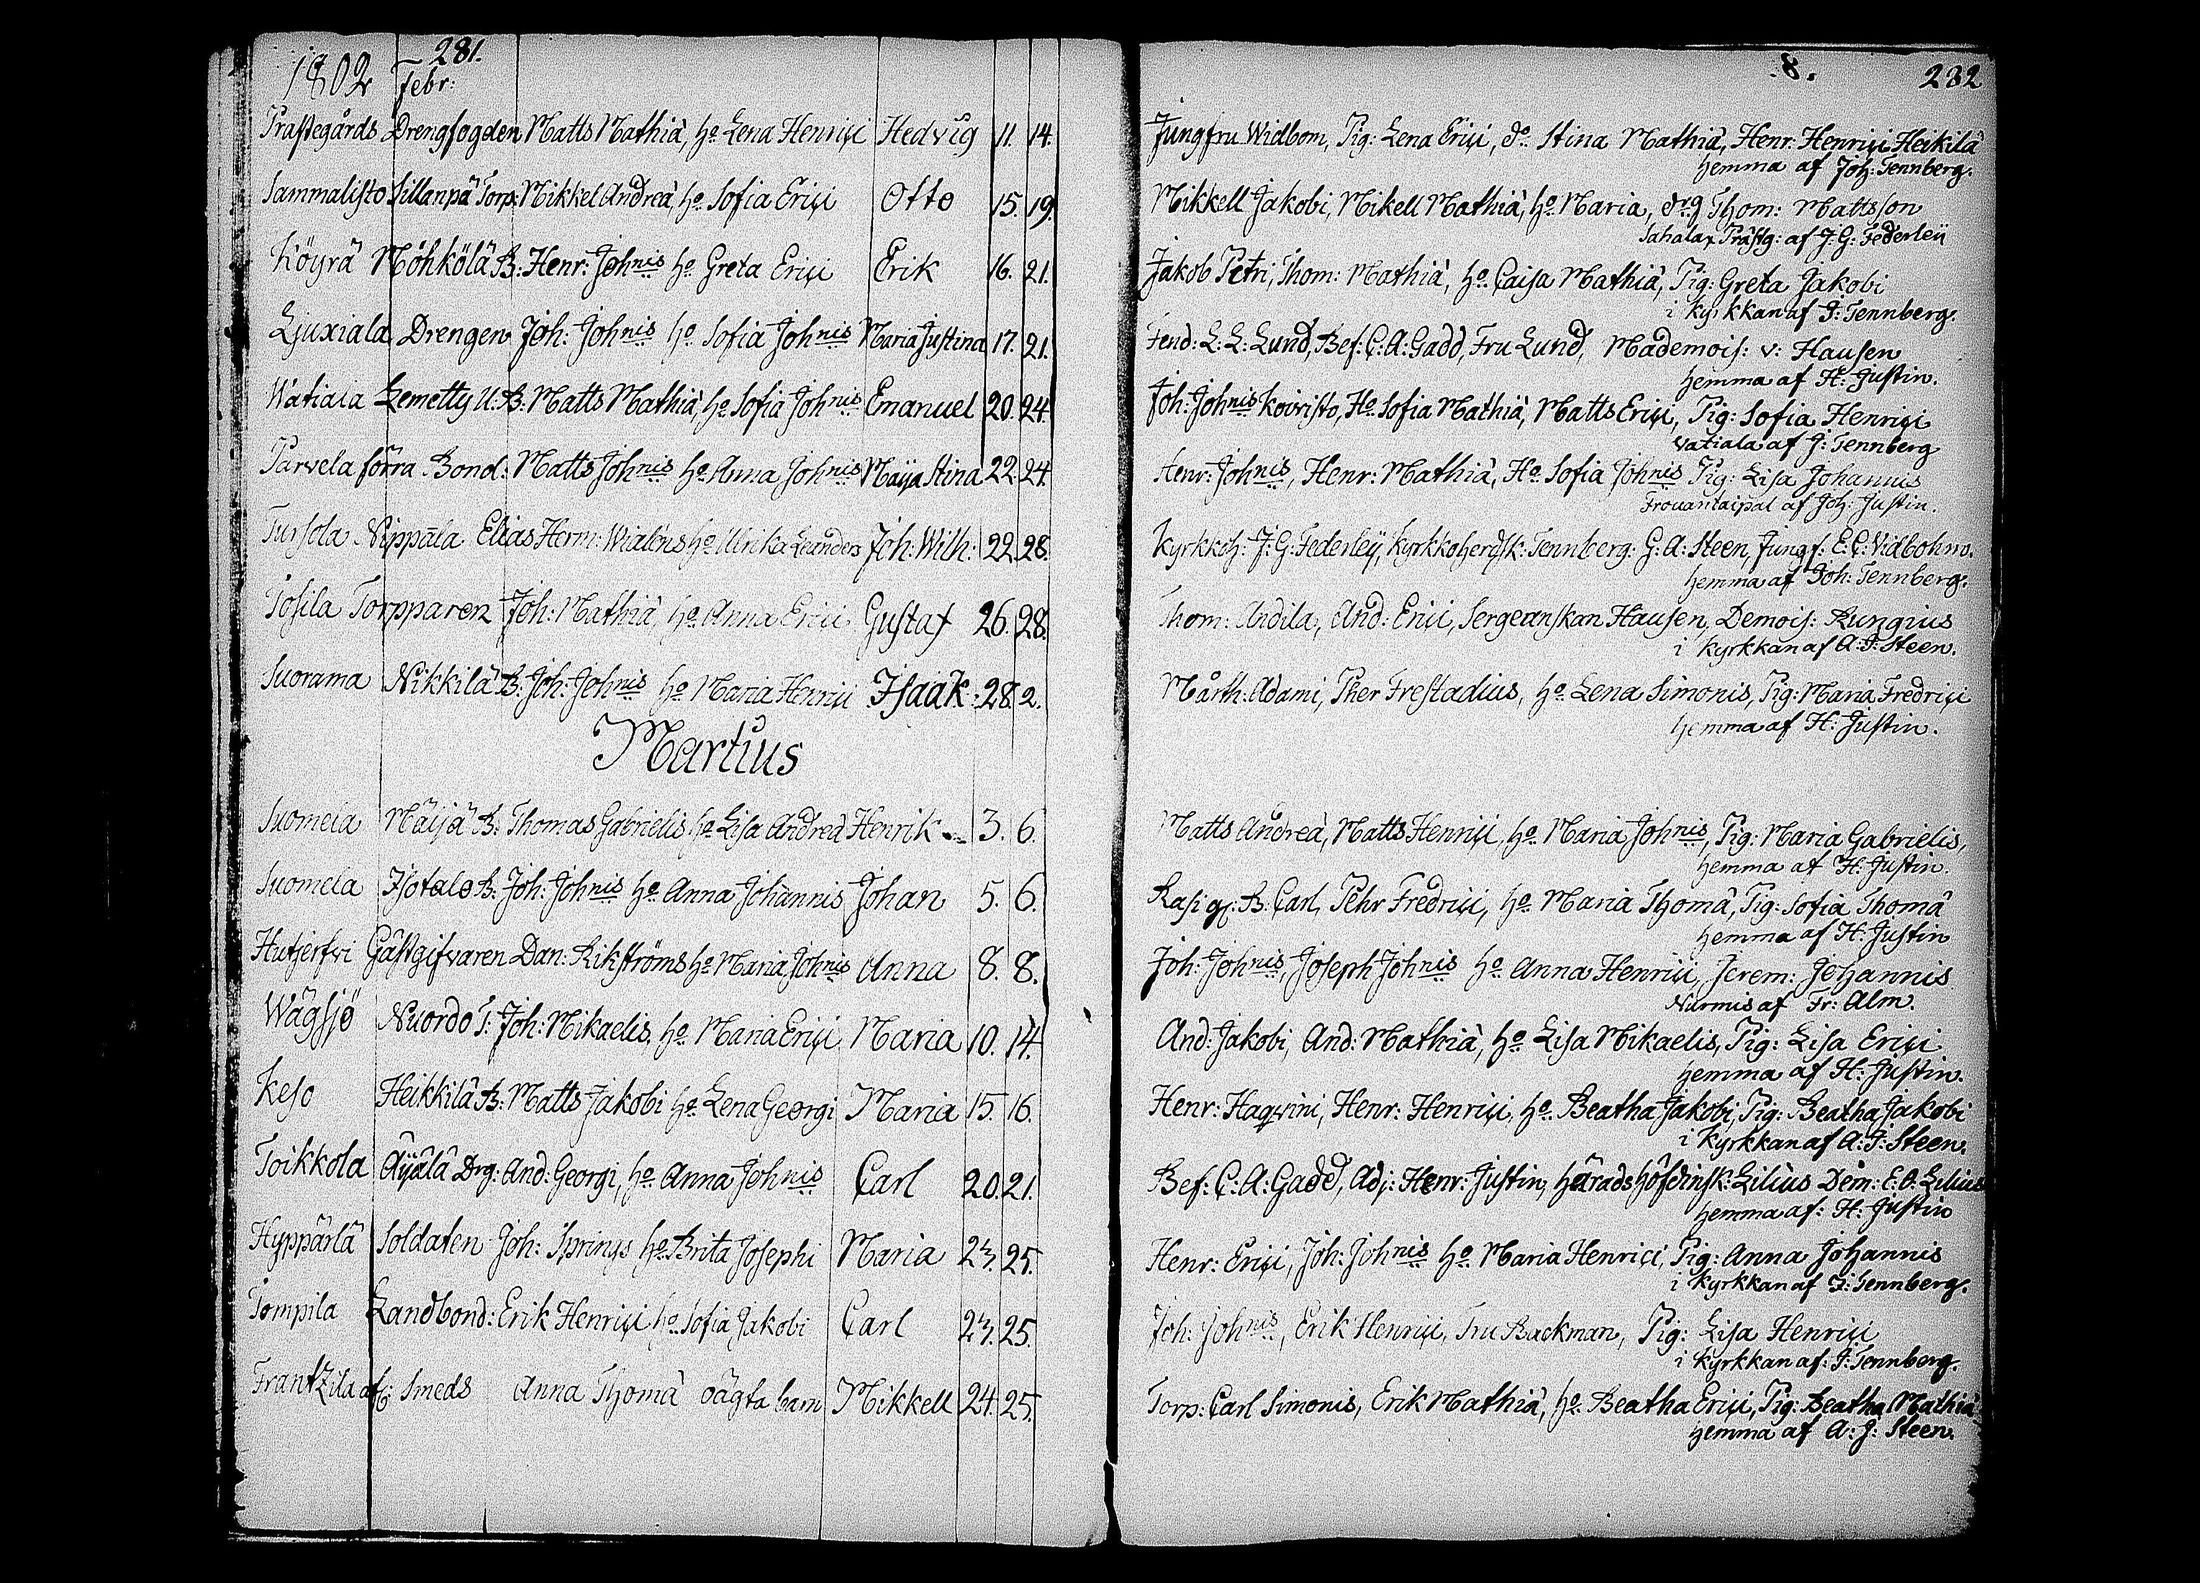 281.
1802 Febr:
Prästegårds Drengfogden Matts Mathiä, ho Lena Henriçi Hedvig 11. 14.
Sammalisto Sillanpä Torp: Mikkel Andreä, ho Sofia Eriçi Otto 15. 19.
Köyrä Möhkölä B: Henr: Johnis ho Greta Eriçi Erik 16. 21.
Ljuxiala Drengen Joh: Johnis ho Sofia Johnis Maria Justina 17. 21.
Watiala Lemetty U. B: Matts Mathiä, ho Sofia Johnis Emanuel 20. 24.
Parvela förra Bond: Matts Johnis ho Anna Johnis Maija Stina 22. 24.
Tursola Nippäla Elias Herm: Wialéns ho Ulrika Leanders Joh: Wilh: 22. 28.
Tosila Torpparen Joh: Mathiä, ho Anna Eriçi Gustaf 26. 28.
Suorama Nikkilä B: Joh: Johnis ho Maria Henriçi Isaak: 28. 2.
Martius
Suomela Mäijä B: Thomas Gabrielis ho Lisa Andreä Henrik 3. 6.
Suomela Isotalo B: Joh: Johnis ho Anna Johannis Johan 5. 6.
Hutjerfvi Gästgifvaren Dan: Rikströms ho Maria Johnis Anna 8. 8.
Wägsjö Nuordo T: Joh: Mikaelis, ho Maria Eriçi Maria 10. 14.
Keso Heikkilä B: Matts Jakobi ho Lena Georgi Maria 15. 16.
Toikkola Äijälä Drg: And: Georgi, ho Anna Johnis Carl 20. 21.
Hyppärlä Soldaten Joh: Springs ho Brita Josephi Maria 23. 25.
Tompila Landbond: Erik Henriçi ho Sofia Jakobi Carl 23. 25.
Frantzila af Smeds Anna Thomä oägta barn Mikkell 24. 25.
8. 282
Jungfru Widbom, Pig: Lena Eriçi, do Stina Mathiä, Henr: Henriçi Heikilä
hemma af Joh: Tennberg.
Mikkell Jakobi, Mikell Mathiä, ho Maria, drg Thom: Mattsson
Sahalax Prästg: af J: G: Federleij
Jakob Petri, Thom: Mathiä, ho Caisa Mathiä, Pig: Greta Jakobi
i kyrkkan af J: Tennberg.
Fend: L: L: Lund, Bef: C: A: Gadd, Fru Lund, Mademois: v: Hausen
hemma af H: Justin.
Joh: Johnis Koivisto, Ho Sofia Mathiä, Matts Eriçi, Pig: Sofia Henriçi
Vatiala af J: Tennberg
Henr: Johnis, Henr: Mathiä, Ho Sofia Johnis Pig: Lisa Johannis
af Joh: Justin.
Kyrkkoh: J: G: Federleij, Kyrkkoherdsk: Tennberg: G: A: Steen, Jungf: E: C: Vidbohm.
hemma af Joh: Tennberg.
Thom: Andila, And: Eriçi, Sergeanskan Hausen, Demois: Rungius
i kyrkkan af A: J: Steen.
Mårth: Adami, Pher Frestadius, ho Lena Simonis, Pig: Maria Fredriçi
hemma af H: Justin.
Matts Andreä, Matts Henriçi, ho Maria Johnis, Pig: Maria Gabrielis,
hemma af H: Justin.
B: Carl, Pehr Fredriçi, ho Maria Thomä, Pig: Sofia Thomä
hemma af H: Justin
Joh: Johnis, Joseph Johnis ho Anna Henriçi, Jerem: Johannis
Nurmis af Fr: Alm.
And: Jakobi, And: Mathiä, ho Lisa Mikaelis, Pig: Lisa Eriçi
hemma af H: Justin.
Henr: Haqvini, Henr: Henriçi, ho Beatha Jakobi, Pig: Beatha Jakobi
i kyrkkan af A: J: Steen.
Bef: C: A: Gadd, Adj: Henr: Justin, häradshöfdinsk: Lilius Dem: E. O: Lilius
hemma af: H: Justin
Henr: Eriçi, Joh: Johnis ho Maria Henriçi, Pig: Anna Johannis
i kyrkkan af J: Tennberg.
Joh: Johnis, Erik Henriçi, Fru Backman, Pig: Lisa Henriçi
i kyrkkan af: J: Tennberg.
Torp: Carl Simonis, Erik Mathiä, ho Beatha Eriçi, Pig: Beatha Mathiä
hemma af A: J: Steen.